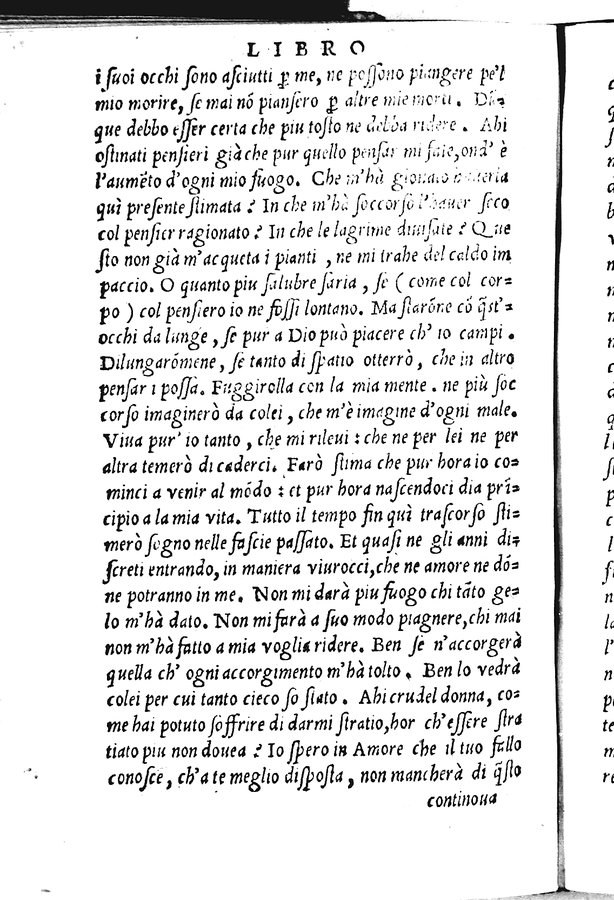 LIBRO
i ſuoi occhi ſono aſciutti ꝑ me, ne poſſono piangere pe'l
mio morire, ſe mai nõ pianſero ꝑ altre mie morti. Dũ-
que debbo eſſer certa che piu toſto ne debba ridere. Ahi
oſtinati penſieri già che pur quello penſar mi faie, ond' è
l'aumẽto d'ogni mio fuogo. Che m'hà giouato
quì preſente ſtimata? In che m'hà ſoccorſo l'hauer ſeco
col penſier ragionato? In che le lagrime diuiſate? Que
ſto non già m'acqueta i pianti, ne mi trahe del caldo im
paccio. O quanto piu ſalubre ſaria, ſe (come col cor-
po) col penſiero io ne foſſi lontano. Ma ſtarõne cõ q̃ſt'-
occhi da lunge, ſe pur a Dio può piacere ch' io campi.
Dilungarómene, ſe tanto di ſpatio otterrò, che in altro
penſar i poſſa. Fuggirolla con la mia mente. ne più ſoc
corſo imaginerò da colei, che m'è imagine d'ogni male.
Viua pur' io tanto, che mi rileui: che ne per lei ne per
altra temerò di caderci. Farò ſtima che pur hora io co=
minci a venir al módo: et pur hora naſcendoci dia prĩ=
cipio a la mia vita. Tutto il tempo fin quì traſcorſo ſti=
merò ſogno nelle faſcie paſſato. Et quaſi ne gli anni di=
ſcreti entrando, in maniera viurocci, che ne amore ne dõ=
ne potranno in me. Non mi darà piu fuogo chi tãto ge=
lo m'hà dato. Non mi farà a ſuo modo piagnere, chi mai
non m'hà fatto a mia voglia ridere. Ben ſe n'accorgerà
quella ch' ogni accorgimento m'hà tolto. Ben lo vedrà
colei per cui tanto cieco ſo ſtato. Ahi crudel donna, co=
me hai potuto ſoffrire di darmi ſtratio, hor ch'eſſere ſtra
tiato piu non douea? Io ſpero in Amore che il tuo fallo
conoſce, ch'a te meglio diſpoſta, non mancherà di q̃ſto
continoua